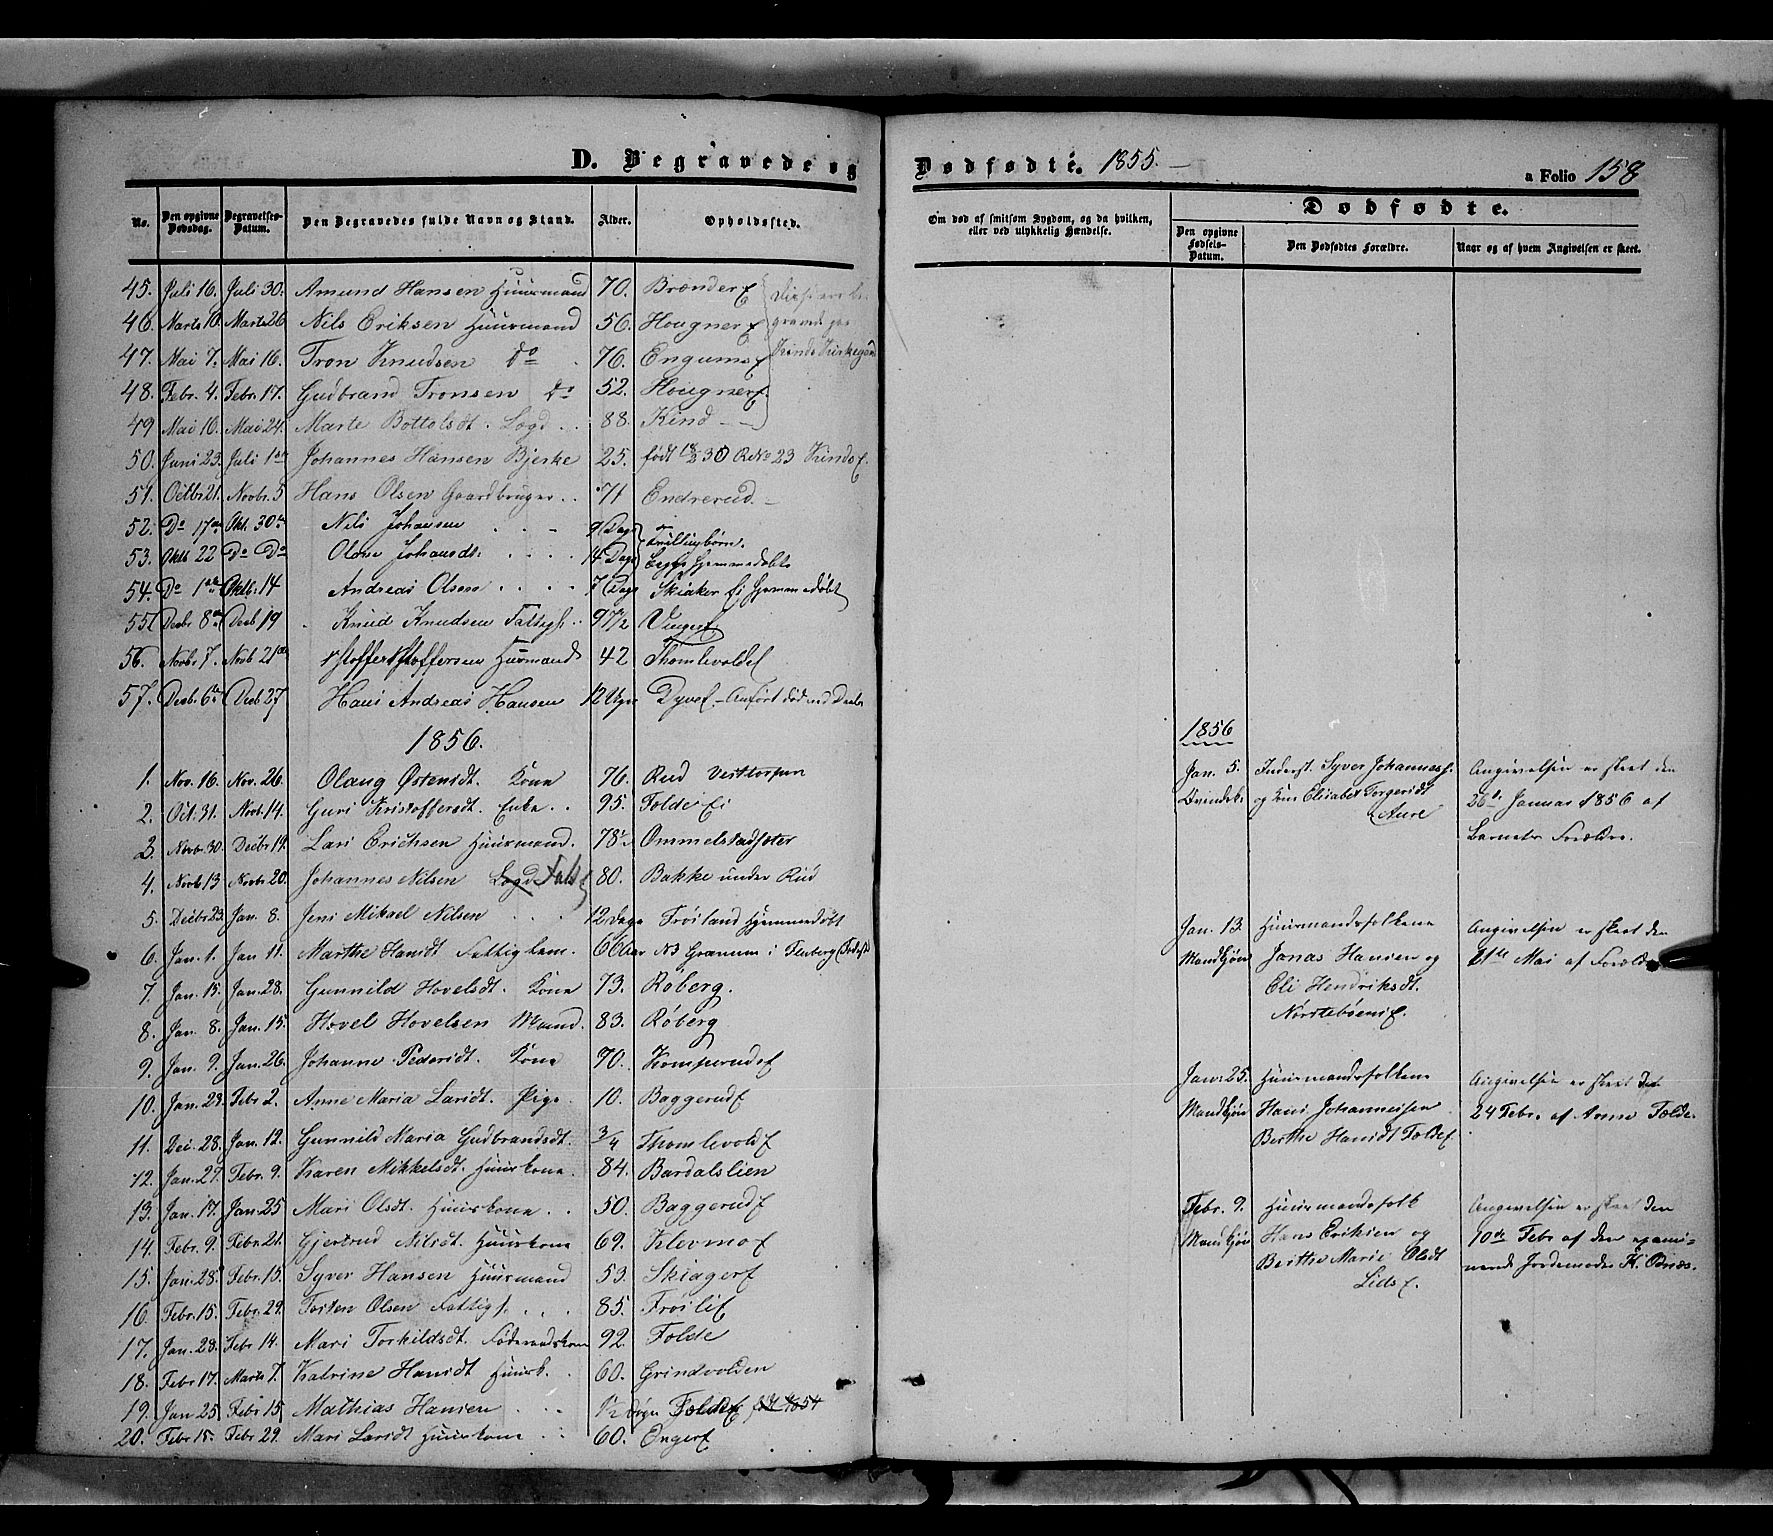 D. Begravede og Dødfødte. 1855. a Folio 158
No. Den opgivne Dødsdag. Begravelses-Datum. Den Begravedes fulde Navn og Stand. Alder. Opholdssted. Om død af smitsom Sygdom, og da hvilken, eller ved ulykkelig Hændelse. Dødfødte. Den opgivne Fødsels-Datum. Den Dødfødtes Forældre. Naar og af hvem Angivelsen er skeet.
45. Juli 16. Juli 30. Amund Hansen Huusmand 70. Brænder
46. Marts 10 Marts 26 Nils Eriksen Huusmand 56. Hougner
47. Mai 7. Mai 16. Tron Knudsen Do 76. Engum
48. Febr. 4. Febr. 17. Gudbrand Tronsen Do 52. Hougner
49 Mai 16. Mai 24. Marte Bottolsdt. Lægd 88. Kind
50. Juni 23. Juli 1 Johannes Hansen Bjerke 25. født 30 No 23 Kinds
51. Octbr 21. Novbr. 5 Hans Olsen Gaardbruger 71 Endrerud
52. Do 17 Okt. 30 Nils Johansen 9 Dage
53. Oktb 22 Do Do Oline Johansdt. 14 Dage Tvillingbørn. Begge Hjemmedøbte
54. Do 1 Oktb. 14 Andreas Olsen 7 Dage Skiaker Ei Hjemmedøbt
55 Decbr 8 Decb 19 Knud Knudsen Fattigl. 97 1/2 Vinger
56. Novbr. 7. Novb 21 Kristoffer Kristoffersen Husmand 42 Thomlevolde
57. Decb. 6 Decb 27 Hans Andreas Hansen 12 Uger Dyve Anført død
1856.
1. Nov. 16. Nov. 26. Olaug Østensdt. Kone 76. Rud Vesttorpen
2. Oct. 31. Novb. 14. Guri Kristoffersdt. Enke 95. Folde Ei
3. Novbr. 30. Decbr 14. Lars Erichsen Huusmand. 78 Ommelstadsæter
4. Novb 13 Novbr. 20. Johannes Nilsen Lægd 80. Bakke under Rud
5. Decbr 23. Jan. 8. Jens Mikael Nilsen 12 Dage Frøiland Hjemmedøbt
6. Jan. 1. Jan 11. Marthe Hansdt Fattiglem. 66 Aar Granum i Fluberg
7. Jan. 15. Jan. 28. Gunnild Hovelsdt. Kone 73. Røberg.
8. Jan. 8. Jan. 15. Hovel Hovelsen Mand. 83. Røberg
9. Jan. 9. Jan. 26. Johanne Pedersdt. Kone 70. Komperud
10. Jan. 23. Febr 2. Anne Maria Larsdt. Pige 10. Baggerud
11. Dec. 28. Jan. 12. Gunnild Maria Gudbrandsdt. 3/4 Thomlevold
12. Jan. 27. Febr. 9. Karen Mikkelsdt. Huuskone 84. Bardalslien
13. Jan. 17. Jan. 25 Mari Olsdt. Huuskone 50. Baggerud
14. Febr. 9. Febr. 21. Gjertrud Nilsdt. Huuskone 69. Klevmo
15. Jan. 28. Febr. 15. Syver Hansen Huusmand 53. Skiager
16. Febr. 15. Febr. 29. Torsten Olsen Fattigl. 85. Frøsli
17. Jan. 23. Febr 14. Mari Torkildsdt. Føderaadskone 92. Folde
18. Febr 17. Marts 7. Katrine Hansdt Huusk. 60. Grindvolden
19. Jan 25 Febr 15 Mathias Hansen 1/2 Døgn Folde 1854
20. Febr 15. Febr 29. Mari Larsdt Huuskone 60. Enger
1856
Jan. 5. Inderst. Syver Johanness. Angivelsen er skeet den
Qvindek. og Kone Elisabet Torgersdt 26 Januar 1856 af
Aure Barnets Forældre.
Jan. 13. Huusmandsfolkene Angivelsen er skeet den
Mandkjøn Jonas Hansen og 21de Mai af Forældre
Eli Hendriksdt.
Nørstebøen
Jan. 25. Huusmandsfolkene Angivelsen er skeet den
Mandkjøn Hans Johannesen 24 Febr. af Anne Folde.
Berthe Hansdt Folde
Febr. 9. Huusmandsfolk Angivelsen er skeet den
Mandkjøn Hans Eriksen og 10de Febr af den exami-
Berthe Marie Olsdt nerede Jordemoder K. Odnæs.
Lids